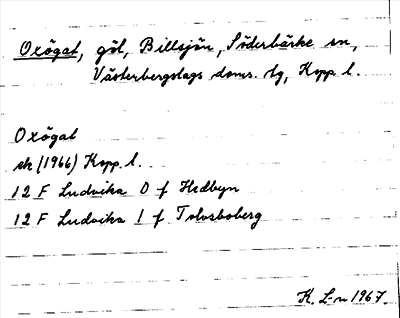 Oxögat, göl, Billsjön, Söderbärke sn,
Västerbergslags doms. tg, Kopp. l.
Oxögat
ek (1966) Kopp. l.
12 F Ludvika 0 f Hedbyn
12 F Ludvika 1 f Tolvsboberg
K. L-n 1967.